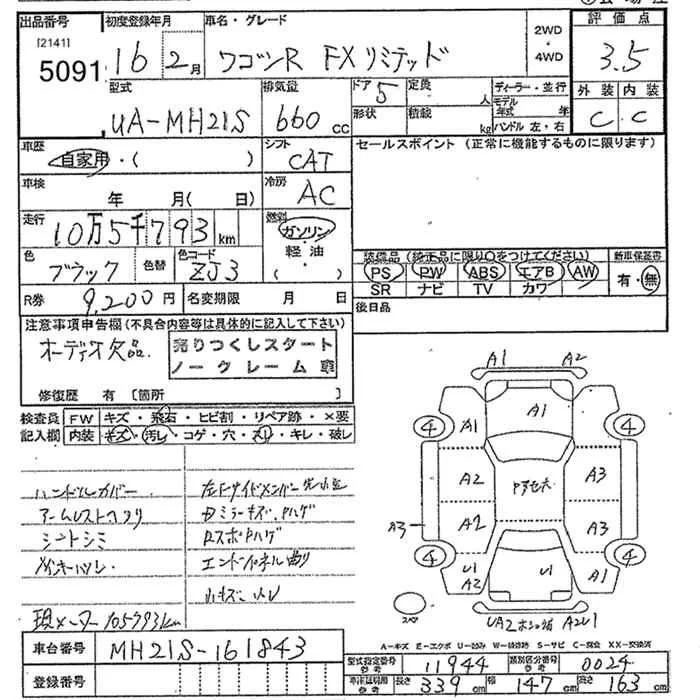 出品番号 初度登録年月 車名・グレード 2WD・4WD 評価点
[2141]
5091 16 2月 ワゴンR FXリミテッド 3.5
型式 排気量 ドア 定員 ディーラー・並行 外装 内装
UA-MH21S 660cc 5 人 モデル年式 年 C C
形状 積載 kg ハンドル 左・右
車歴 シフト セールスポイント(正常に機能するものに限ります)
自家用・( ) CAT
車検 冷房
年 月( 日) AC
走行 燃料
10万5千793km ガソリン・軽油・( )
色 色替 色コード 装備品(純正品に限り○をつけてください) 新車保証書
ブラック ZJ3 PS PW ABS エアB AW 有・無
SR ナビ TV カワ
R券 9,200円 名変期限 月 日 後日品
注意事項申告欄(不具合内容等は具体的に記入して下さい)
オーディオ欠品 売りつくしスタート
ノークレーム車
修復歴 有 [箇所 ]
検査員 FW キズ・飛石・ヒビ割・リペア跡・×要
記入欄 内装 キズ・汚レ・コゲ・穴・スレ・キレ・破レ
ハンドルカバー
シートシミ
現メーター 105793km
エンドパネル曲り
A1 A2
A1
4 A1 4
A2 A3
A3 A2 A3
4 4
U1 U1 A1
A2
スペア
車台番号 MH21S-161843
登録番号
A-キズ E-エクボ U-凹み W-補修跡 S-サビ C-腐食 XX-交換済
型式指定番号 参考 11944 類別区分番号 参考 0024
車体証明用 参考 長さ 339cm 幅 147cm 高さ 163cm